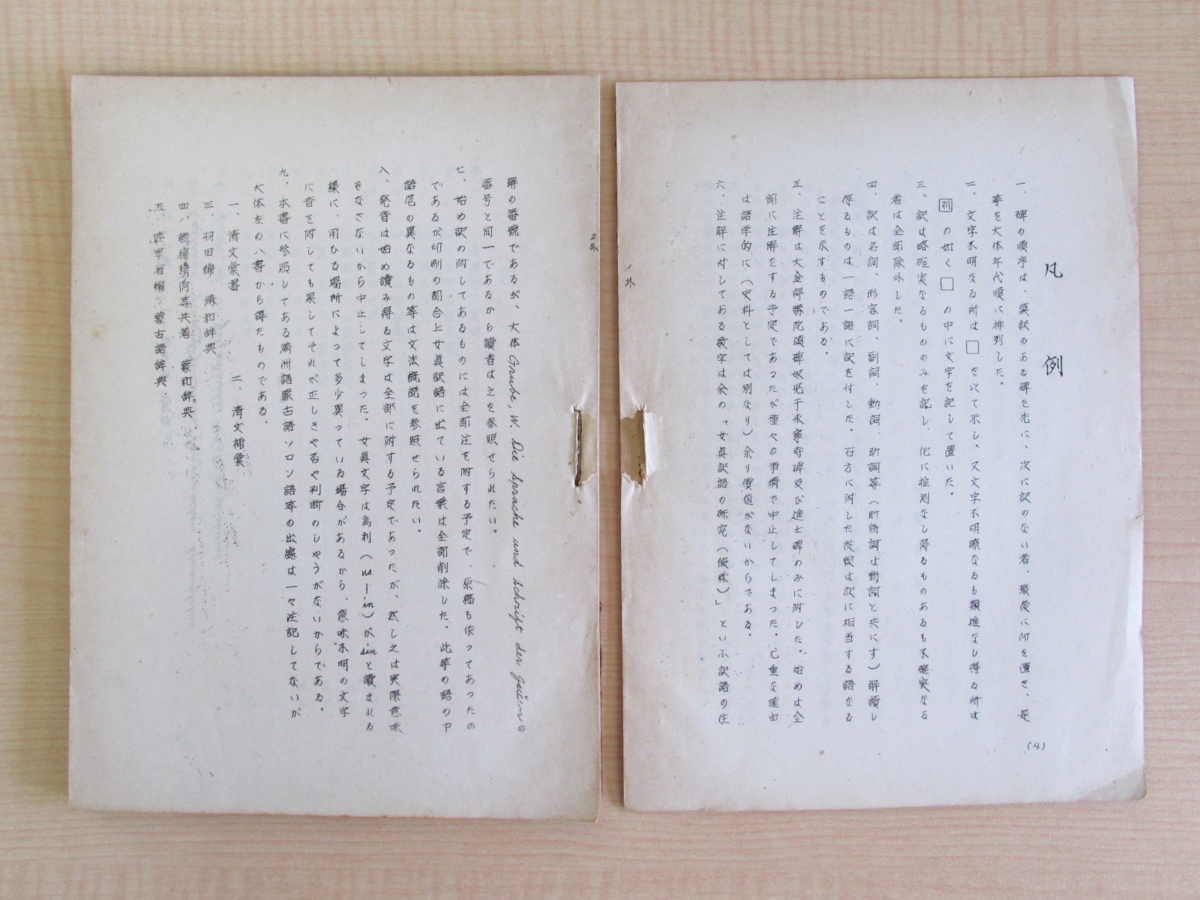 凡例
一、碑の順序は、漢訳のある碑を先に、次に訳のない者、最後に印を置き、是
等を大体年代順に排列した。
二、文字不明なる所は□を以て示し、又文字不明瞭なるも類推なし得る所は
の如く□の中に文字を記して置いた。
三、訳は略確実なるもののみを記し、他に推測なし得るものあるも不確実なる
者は全部除外した。
四、訳は名詞、形容詞、副詞、動詞、助詞等(助動詞は動詞と共にす)解読し
得るものは一語一語に訳を付した。右方に附した
は訳に相当する語なる
ことを示すものである。
五、注解は大金得勝陀頌碑奴児干永寧寺碑及び進士碑のみに附した。始めは全
部に注解をする予定であつたが種々の事情で中止してしまつた。尤重な理由
は語学的に(史料としては別なり)余り價値がないからである。
六、注解に付してある数字は余の「女真訳語の研究(仮称)」といふ訳語の注
(4)
ノ外
解の番号であるが、大体Grube, W. Die Sprache und Schrift der Jučenの
番号と同一であるから讀者は之を参照せられたい。
七、始め訳の附してあるものには全部注を附する予定で、原稿も作つてあつたの
であるが印刷の都合上女真訳語に出ている言葉は全部削除した。此等の語の中
語尾の異なるもの等は文法概説を参照せられたい。
八、発音は始め讀み得る文字は全部に附する予定であつたが、然し之は実際意味
をなさないから中止してしまつた。女真文字は烏利(us—in)が sin と讀まれる
様に、用ひる場所によつて多少異つている場合があるから、意味不明の文字
に音を附しても果してそれが正しきや否や判断のしやうがないからである。
九、本書に参照してある満洲語蒙古語ソロン語等の出處は一々注記してないが
大体左の八書から得たものである。
一、清文彙書　二、清文補彙
三、羽田編　満和辞典
四、共著　蒙和辞典
五、陸軍省編　蒙古語辞典